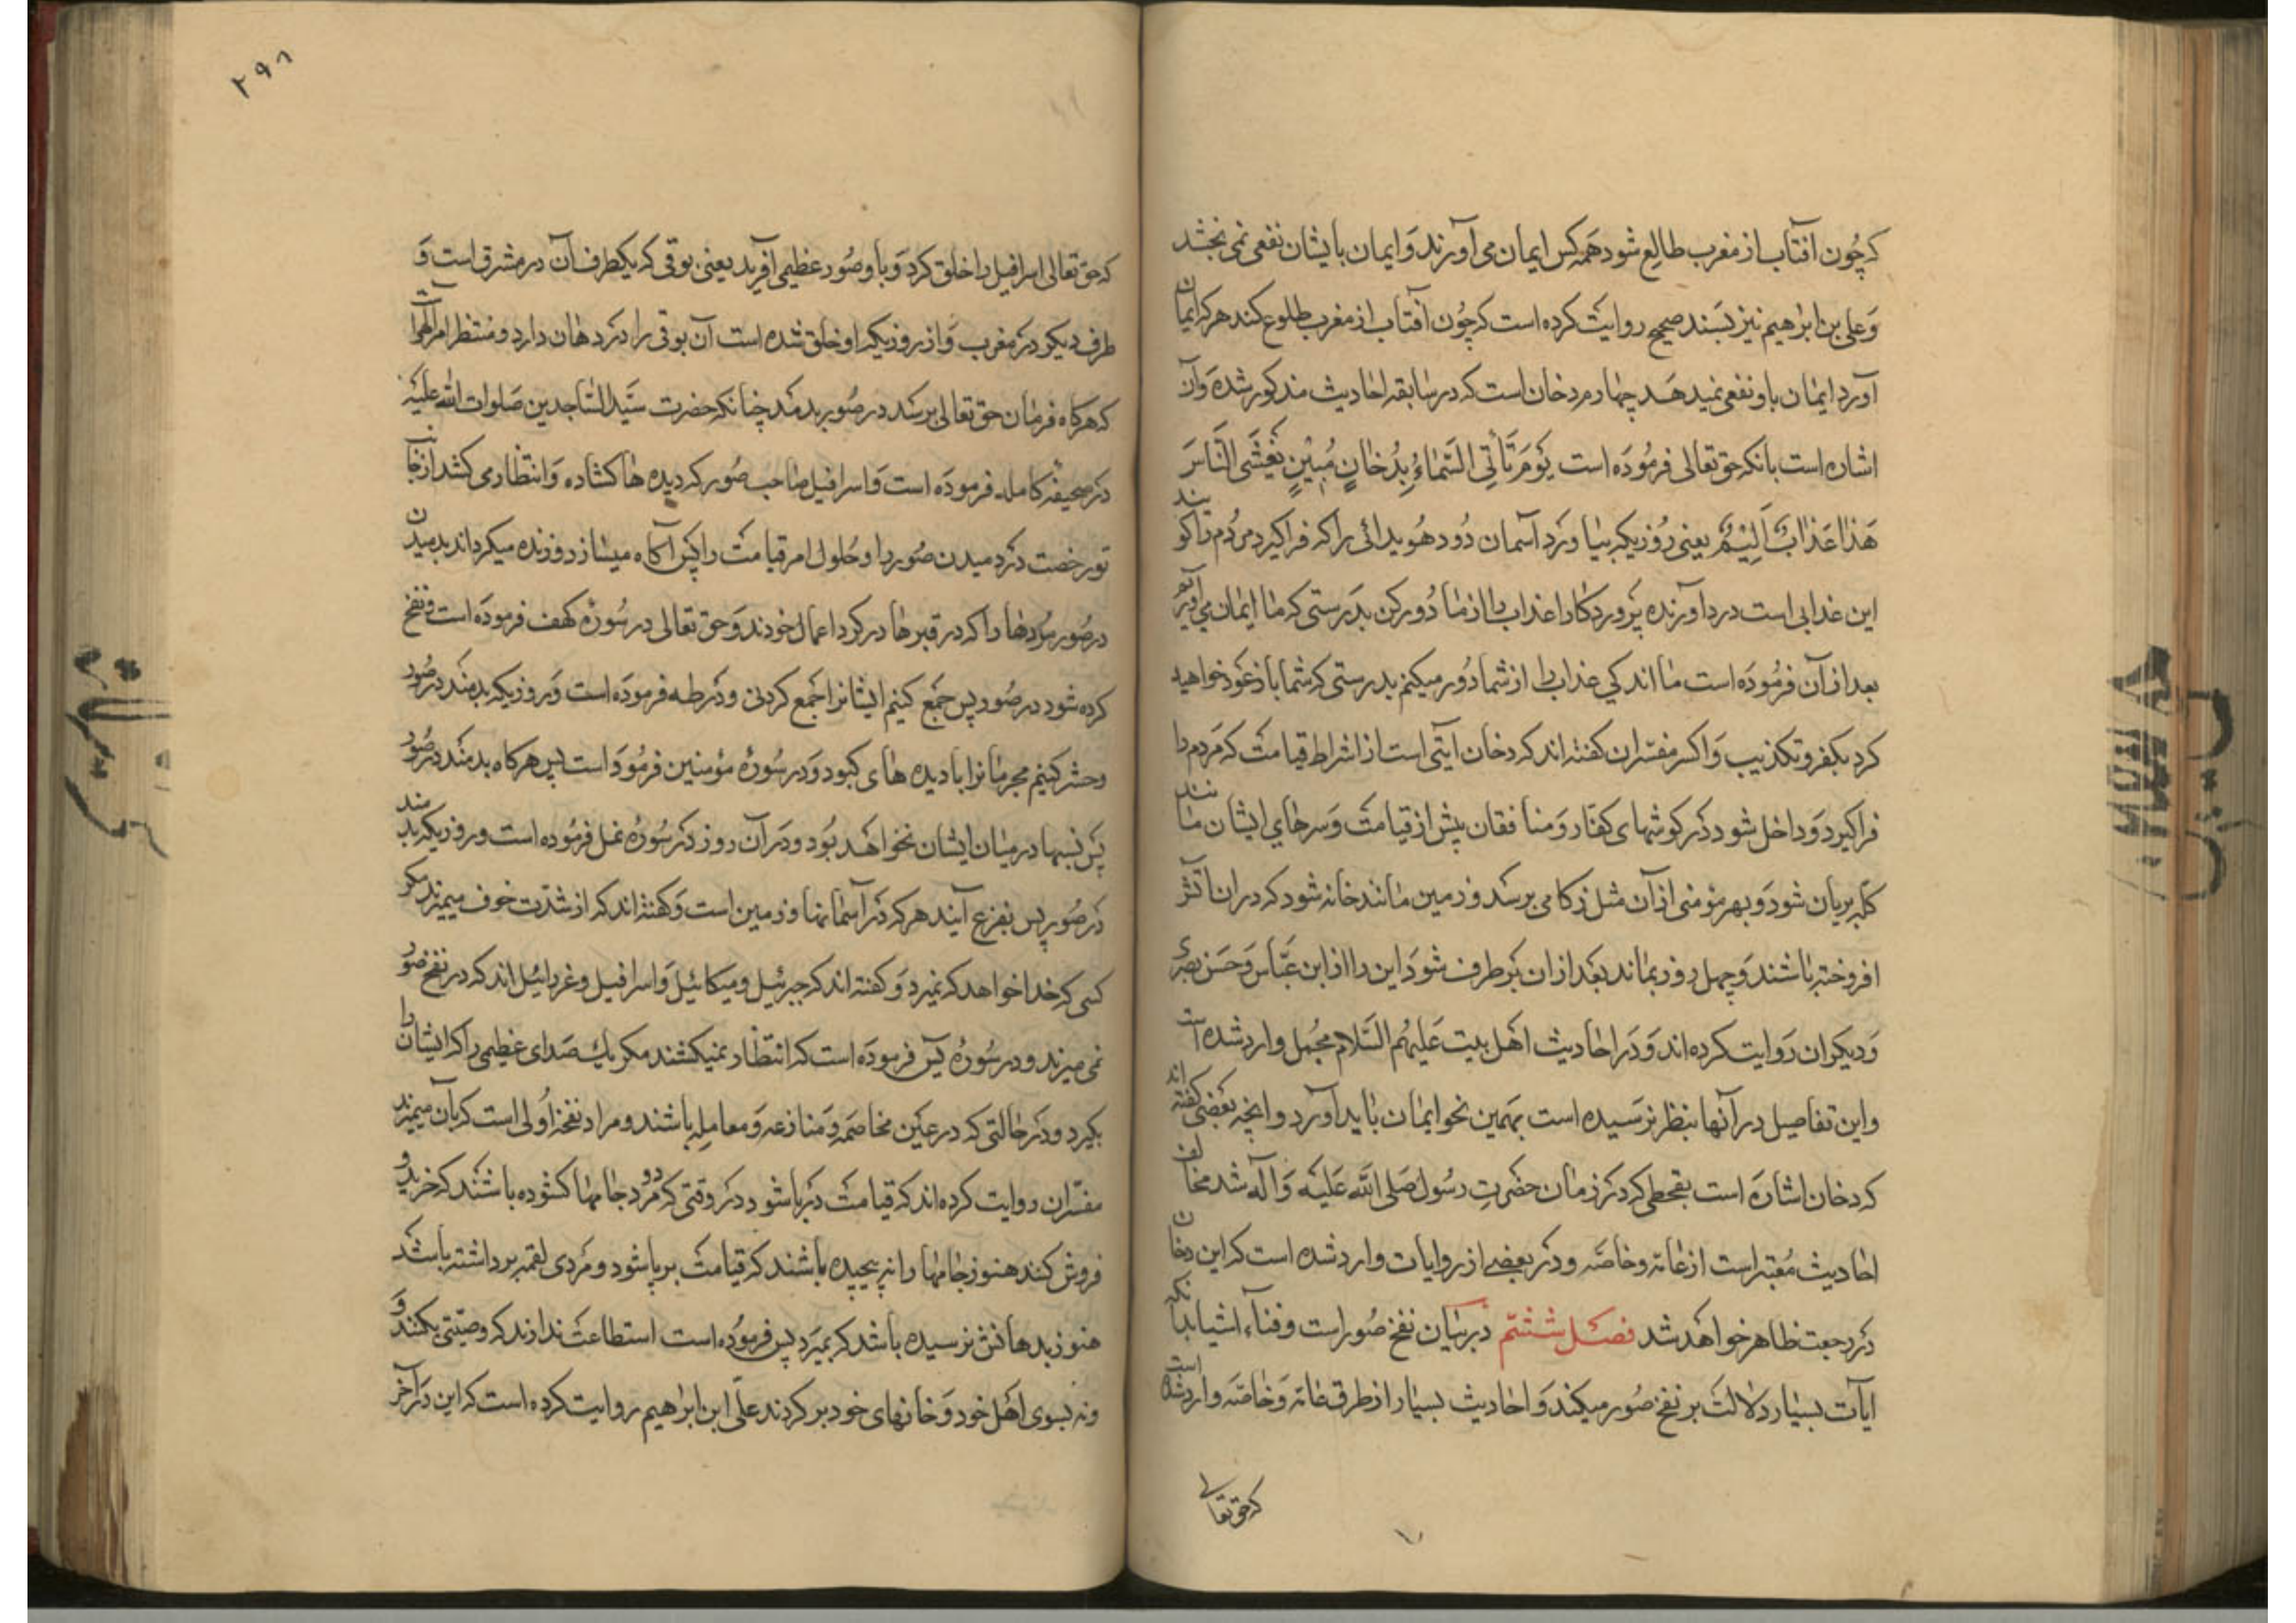 که چون آفتاب از مغرب طالع شود همه کس ایمان می آورند و ایمان بایشان نفعی نمی بخشد
و علی بن ابراهیم نیز بسند صحیح روایت کرده است که چون آفتاب از مغرب طلوع کند هر که ایمان
آورد ایمان باو نفعی نمیدهد چهارم دخان است که در سابقه احادیث مذکور شده و آن
اشاره است بانکه حق تعالی فرموده است یَوْمَ تَأْتِی السَّمٰاءُ بِدُخٰانٍ مُبِیْنٍ یَغْشَی النّٰاسَ
هَذٰا عَذٰابٌ اَلِیْمٌ یعنی روزیکه بیاورد آسمان دود هویدائی را که فرا گیرد مردم را گویند
این عذابی است درد آورنده پروردگارا عذاب را از ما دور کن بدرستی که ما ایمان می آوریم
بعد از آن فرموده است ما اندکی عذاب را از شما دور میکنم بدرستی که شما باز عود خواهید
کرد بکفر و تکذیب و اکثر مفسران گفته اند که دخان آیتی است از اشراط قیامت که مردم را
فرا گیرد و داخل شود در گوشهای کفار و منافقان پیش از قیامت و سرهای ایشان مانند
کله بریان شود و بهر مؤمنی از آن مثل زکامی برسد و زمین مانند خانه شود که در ان آتش
افروخته باشند و چهل روز بماند بعد از ان برطرف شود این را از ابن عباس و حسن بصری
و دیگران روایت کرده اند و در احادیث اهل بیت علیهم السلام مجمل وارد شده است
و این تفاصیل در آنها بنظر نرسیده است بهمین نحو ایمان باید آورد و انچه بعضی گفته اند
که دخان اشاره است بقحطی که در زمان حضرت رسول صلی الله علیه و آله شد مخالف
احادیث معتبر است از عامه و خاصه و در بعضی از روایات وارد شده است که این دخان
در رجعت ظاهر خواهد شد فصل ششم در بیان نفخ صور است و فناء اشیا بدانکه
ایات بسیار دلالت بر نفخ صور میکند و احادیث بسیار از طرق عامه و خاصه وارد شده است
که حق تعالی
۲۹۸
که حق تعالی اسرافیل را خلق کرد و با او صور عظیمی آفرید یعنی بوقی که یکطرف آن در مشرق است و
طرف دیگر در مغرب و از روزیکه او خلق شده است آن بوقی را در دهان دارد و منتظر امر الهی است
که هرگاه فرمان حق تعالی برسد در صور بدمد چنانکه حضرت سید الساجدین صلوات الله علیه
در صحیفه کامله فرموده است و اسرافیل صاحب صور که دیده ها گشاده و انتظار می کشد از جانب
تو رخصت در دمیدن صور را و حلول امر قیامت را پس آگاه میسازد و زنده میگرداند بدمیدن
در صور مردها را که در قبرها در گرو اعمال خودند و حق تعالی در سوره کهف فرموده است و نفخ
کرده شود در صور پس جمع کنیم ایشانرا جمع کردنی و در طه فرموده است و روزیکه بدمند در صور
و حشر کنیم مجرمانرا بادیده های کبود و در سوره مؤمنین فرموده است پس هرگاه بدمند در صور
پس نسبها در میان ایشان نخواهد بود و در آن روز در سوره نمل فرموده است و روزیکه بدمند
در صور پس بفزع آیند هر که در آسمانها و زمین است و گفته اند که از شدت خوف میمیرند مگر
کسی که خدا خواهد که نمیرد و گفته اند که جبرئیل و میکائیل و اسرافیل و عزرائیل اند که در نفخ صور
نمی میرند و در سوره یس فرموده است که انتظار نمیکشند مگر یک صدای عظیمی را که ایشان را
بگیرد و در حالتی که در عین مخاصمه و منازعه و معامله باشند و مراد نفخه اولی است که بان میمیرند
مفسران روایت کرده اند که قیامت برپا شود در وقتی که دو مرد جامها گشوده باشند که خرید و
فروش کنند هنوز جامها را نه پیچیده باشند که قیامت برپا شود و مردی لقمه برداشته باشد
هنوز بدهانش نرسیده باشد که بمیرد پس فرموده است استطاعت ندارند که وصیتی بکنند و
و نه بسوی اهل خود و خانهای خود برگردند علی ابن ابراهیم روایت کرده است که این در آخر